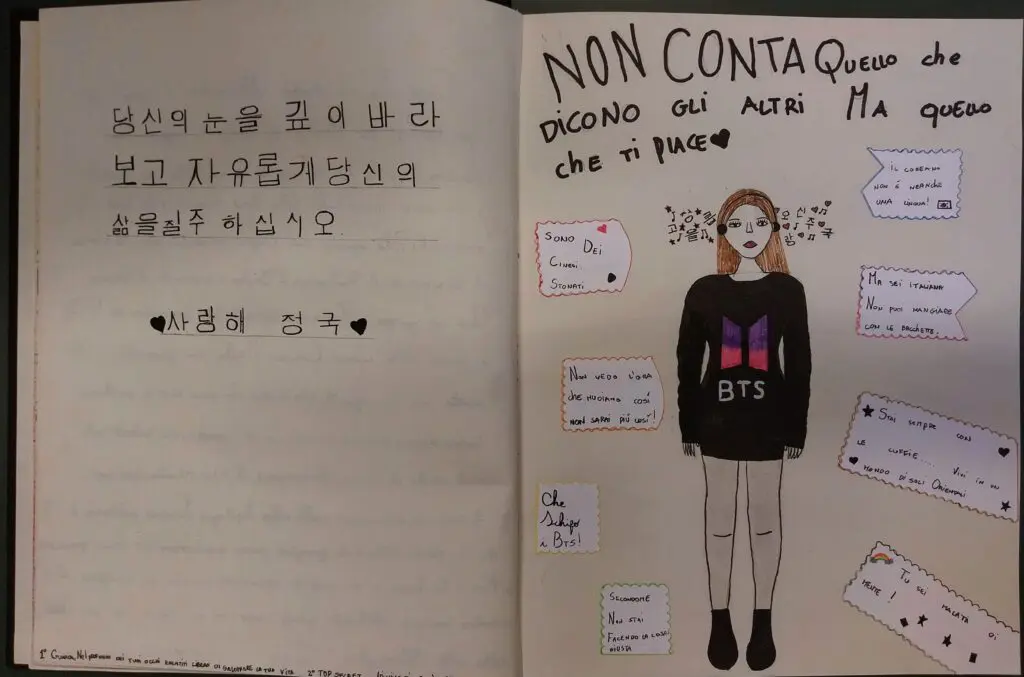 당신의 눈을 깊이 바라
보고 자유롭게당신의
삶을질주 하십시오.
사랑해 정국
1° Guarda Nel profondo dei tuoi occhi e sentiti libero di galoppare la tua vita 2° TOP SECRET
NON CONTA Quello che
DICONO GLI ALTRI MA quello
che TI PIACE
SONO DEI
CINESI
STONATI
NON VEDO L'ORA
CHE MUOIANO COSÌ
NON SARAI PIÙ COSÌ!
Che
Schifo
i BTS!
SECONDOME
NON STAI
FACENDO LA COSA
GIUSTA
BTS
IL COREANO
NON É NEANCHE
UNA LINGUA!
MA SEI ITALIANA
NON PUOI MANGIARE
CON LE BACCHETTE.
STAI SEMPRE CON
LE CUFFIE.... VIVI IN UN
MONDO DI SOLI ORIENTALI
TU SEI MALATA DI
MENTE!